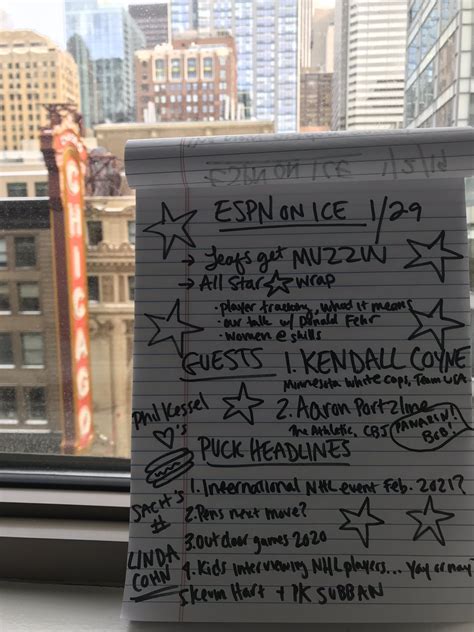 CHICAGO
ESPN ON ICE 1/29
→ Leafs get MUZZIN
→ All Star wrap
· player tracking, what it means
· our talk w/ Donald Fehr
· women @ skills
GUESTS 1. KENDALL COYNE
Minnesota White Caps, Team USA
2. Aaron Portzline
The Athletic, CBJ
PANARIN!
BOB!
Phil Kessel
♡'s
PUCK HEADLINES
1. International NHL event Feb. 2021?
SACH'S
#
2. Pens next move?
3. Outdoor games 2020
LINDA
COHN
4. Kids interviewing NHL players... Yay or nay?
5 Kevin Hart + PK SUBBAN